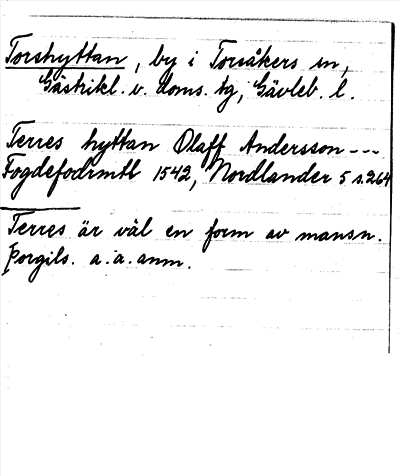 Torshyttan, by i Torsåkers sn,
Gästrikl. v. doms. tg, Gävleb. l.
Terres hyttan Olaff Andersson ---
Fogdefodrmtl 1542, Nordlander 5 s.264
Terres är väl en form av mansn.
Þorgils. a.a.anm.